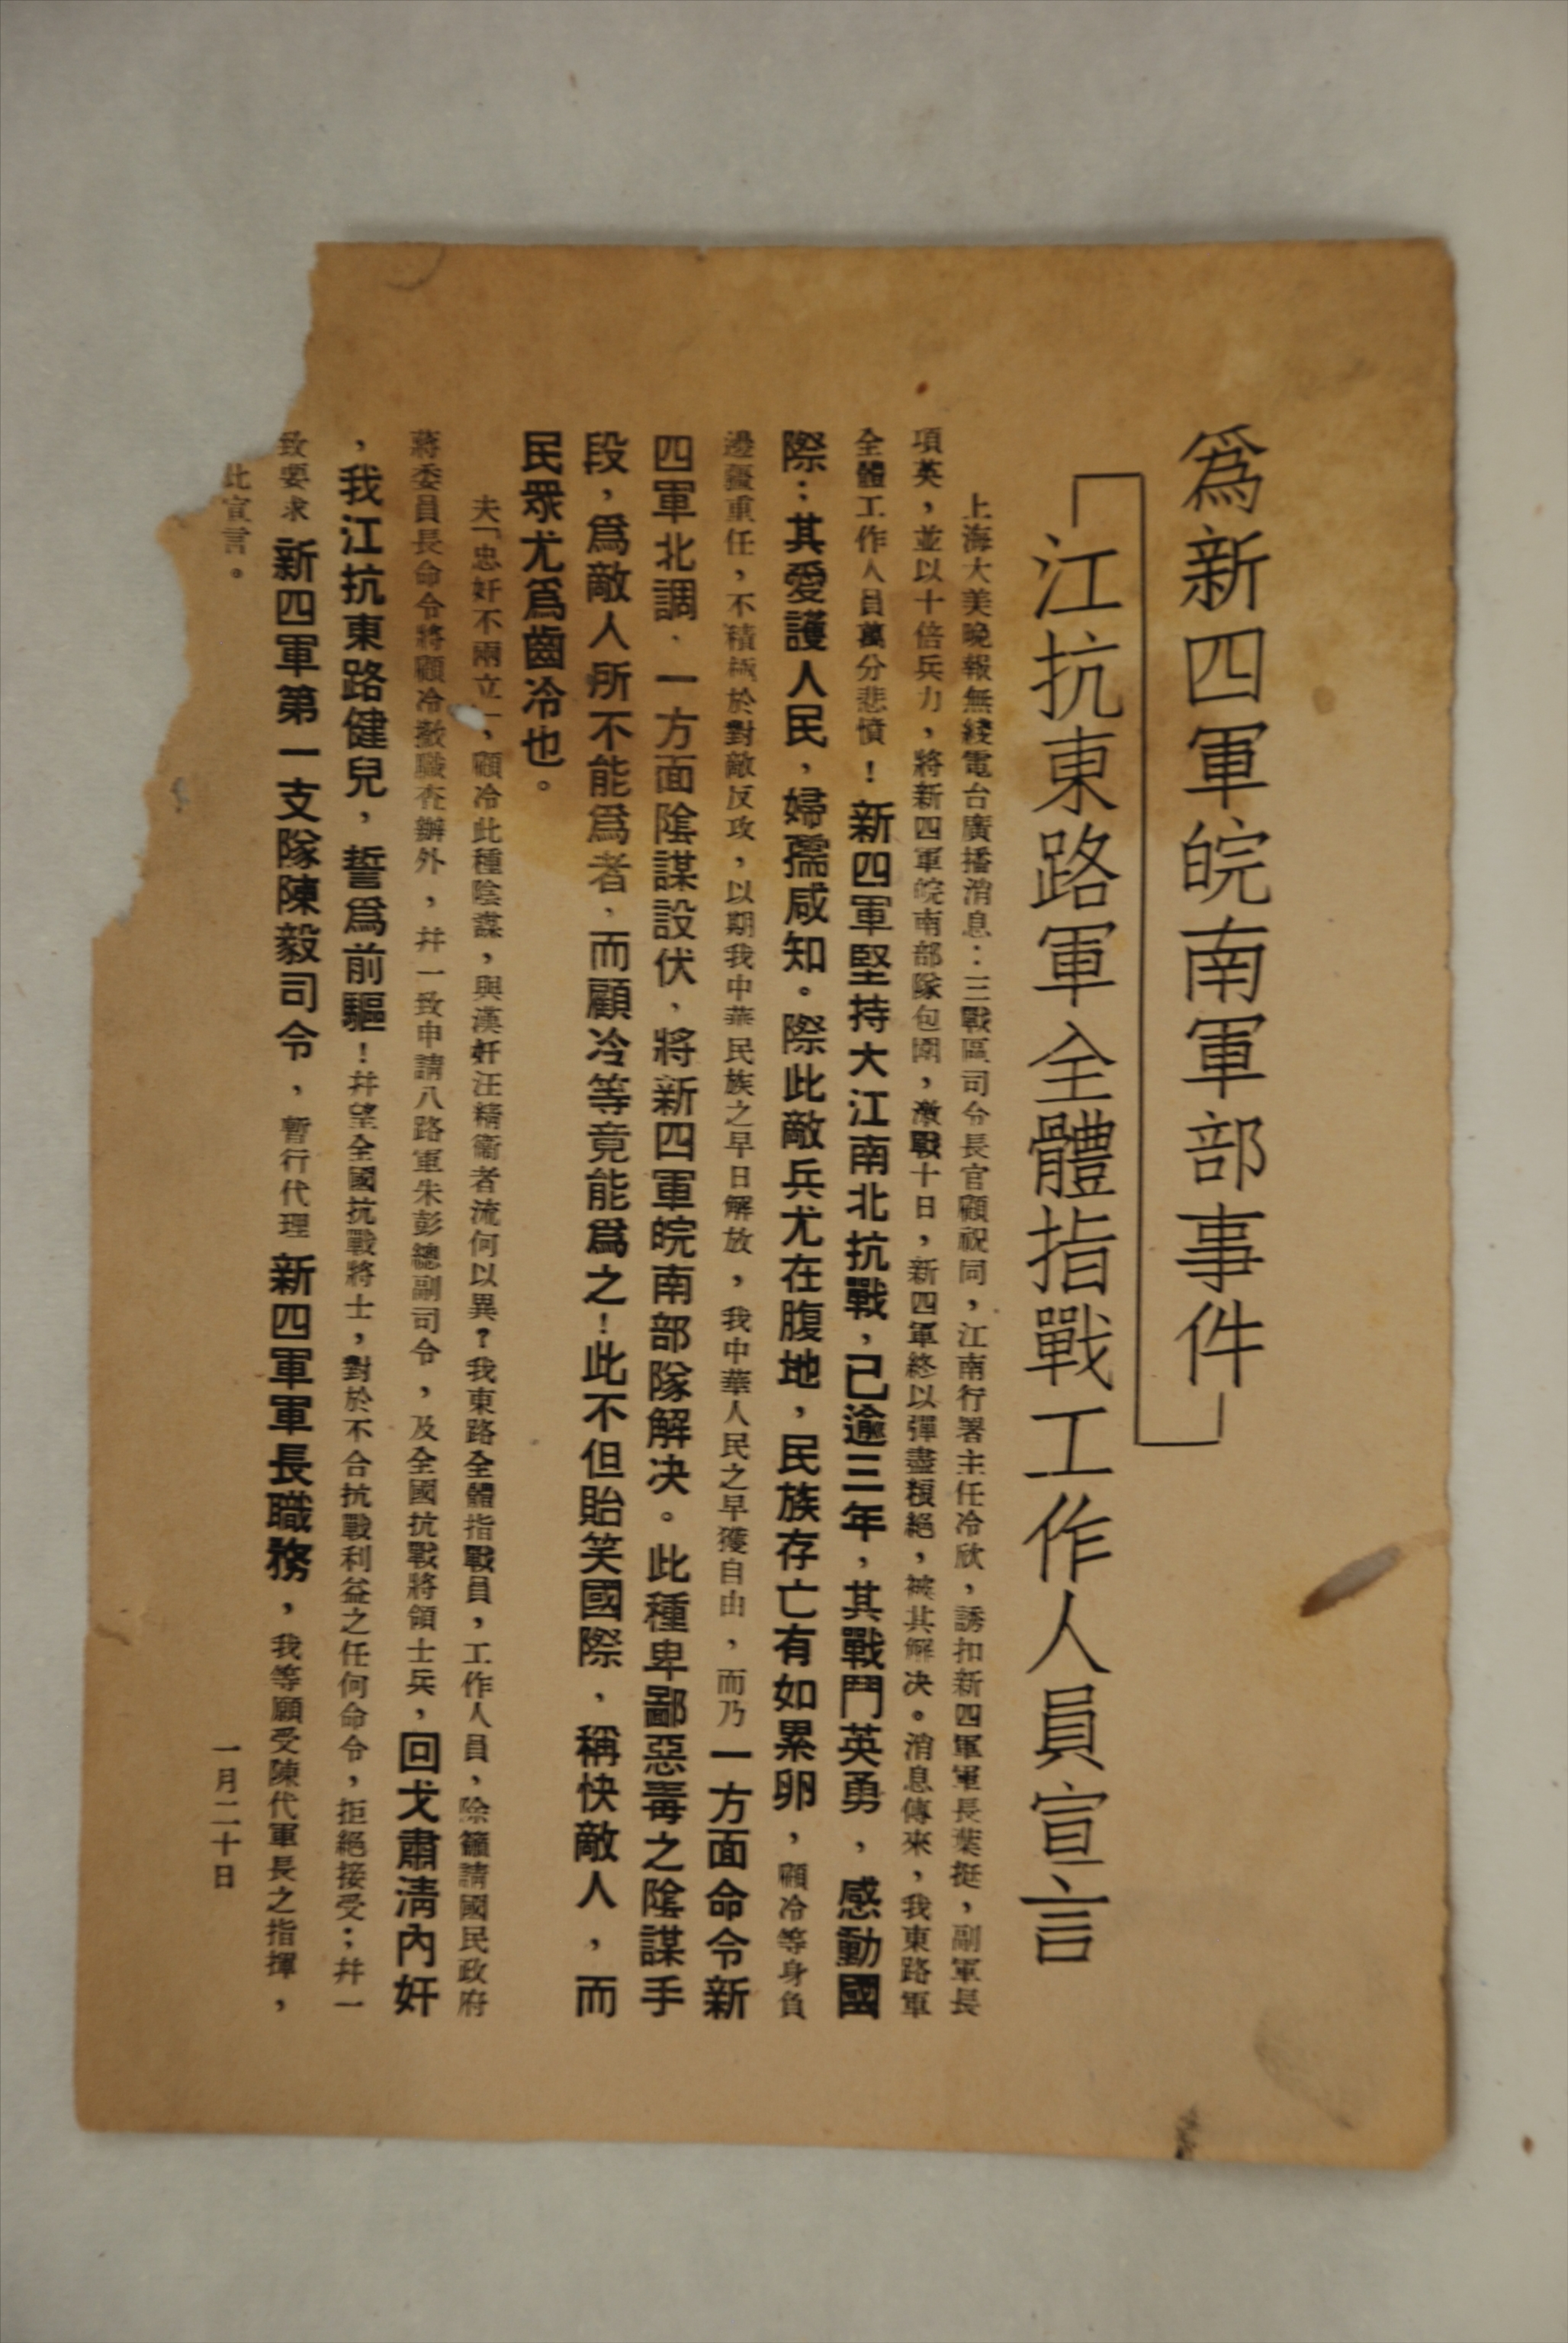 爲新四軍皖南軍部事件
江抗東路軍全體指戰工作人員宣言
上海大美晚報無綫電台廣播消息：三戰區司令長官顧祝同，江南行署主任冷欣，誘扣新四軍軍長葉挺，副軍長
項英，並以十倍兵力，將新四軍皖南部隊包圍，激戰十日，新四軍終以彈盡糧絕，被其解决。消息傳來，我東路軍
全體工作人員萬分悲憤！新四軍堅持大江南北抗戰，已逾三年，其戰鬥英勇，感動國
際：其愛護人民，婦孺咸知。際此敵兵尤在腹地，民族存亡有如累卵，顧冷等身負
邊疆重任，不積極於對敵反攻，以期我中華民族之早日解放，我中華人民之早獲自由，而乃一方面命令新
四軍北調、一方面陰謀設伏，將新四軍皖南部隊解决。此種卑鄙惡毒之陰謀手
段，爲敵人所不能爲者，而顧冷等竟能爲之！此不但貽笑國際，稱快敵人，而
民眾尤爲齒冷也。
夫「忠奸不兩立」，顧冷此種陰謀，與漢奸汪精衛者流何以異？我東路全體指戰員，工作人員，除籲請國民政府
蔣委員長命令將顧冷撤職查辦外，幷一致申請八路軍朱彭總副司令，及全國抗戰將領士兵，回戈肅淸內奸
，我江抗東路健兒，誓爲前驅！幷望全國抗戰將士，對於不合抗戰利益之任何命令，拒絕接受；幷一
致要求新四軍第一支隊陳毅司令，暫行代理新四軍軍長職務，我等願受陳代軍長之指揮，
此宣言。
一月二十日